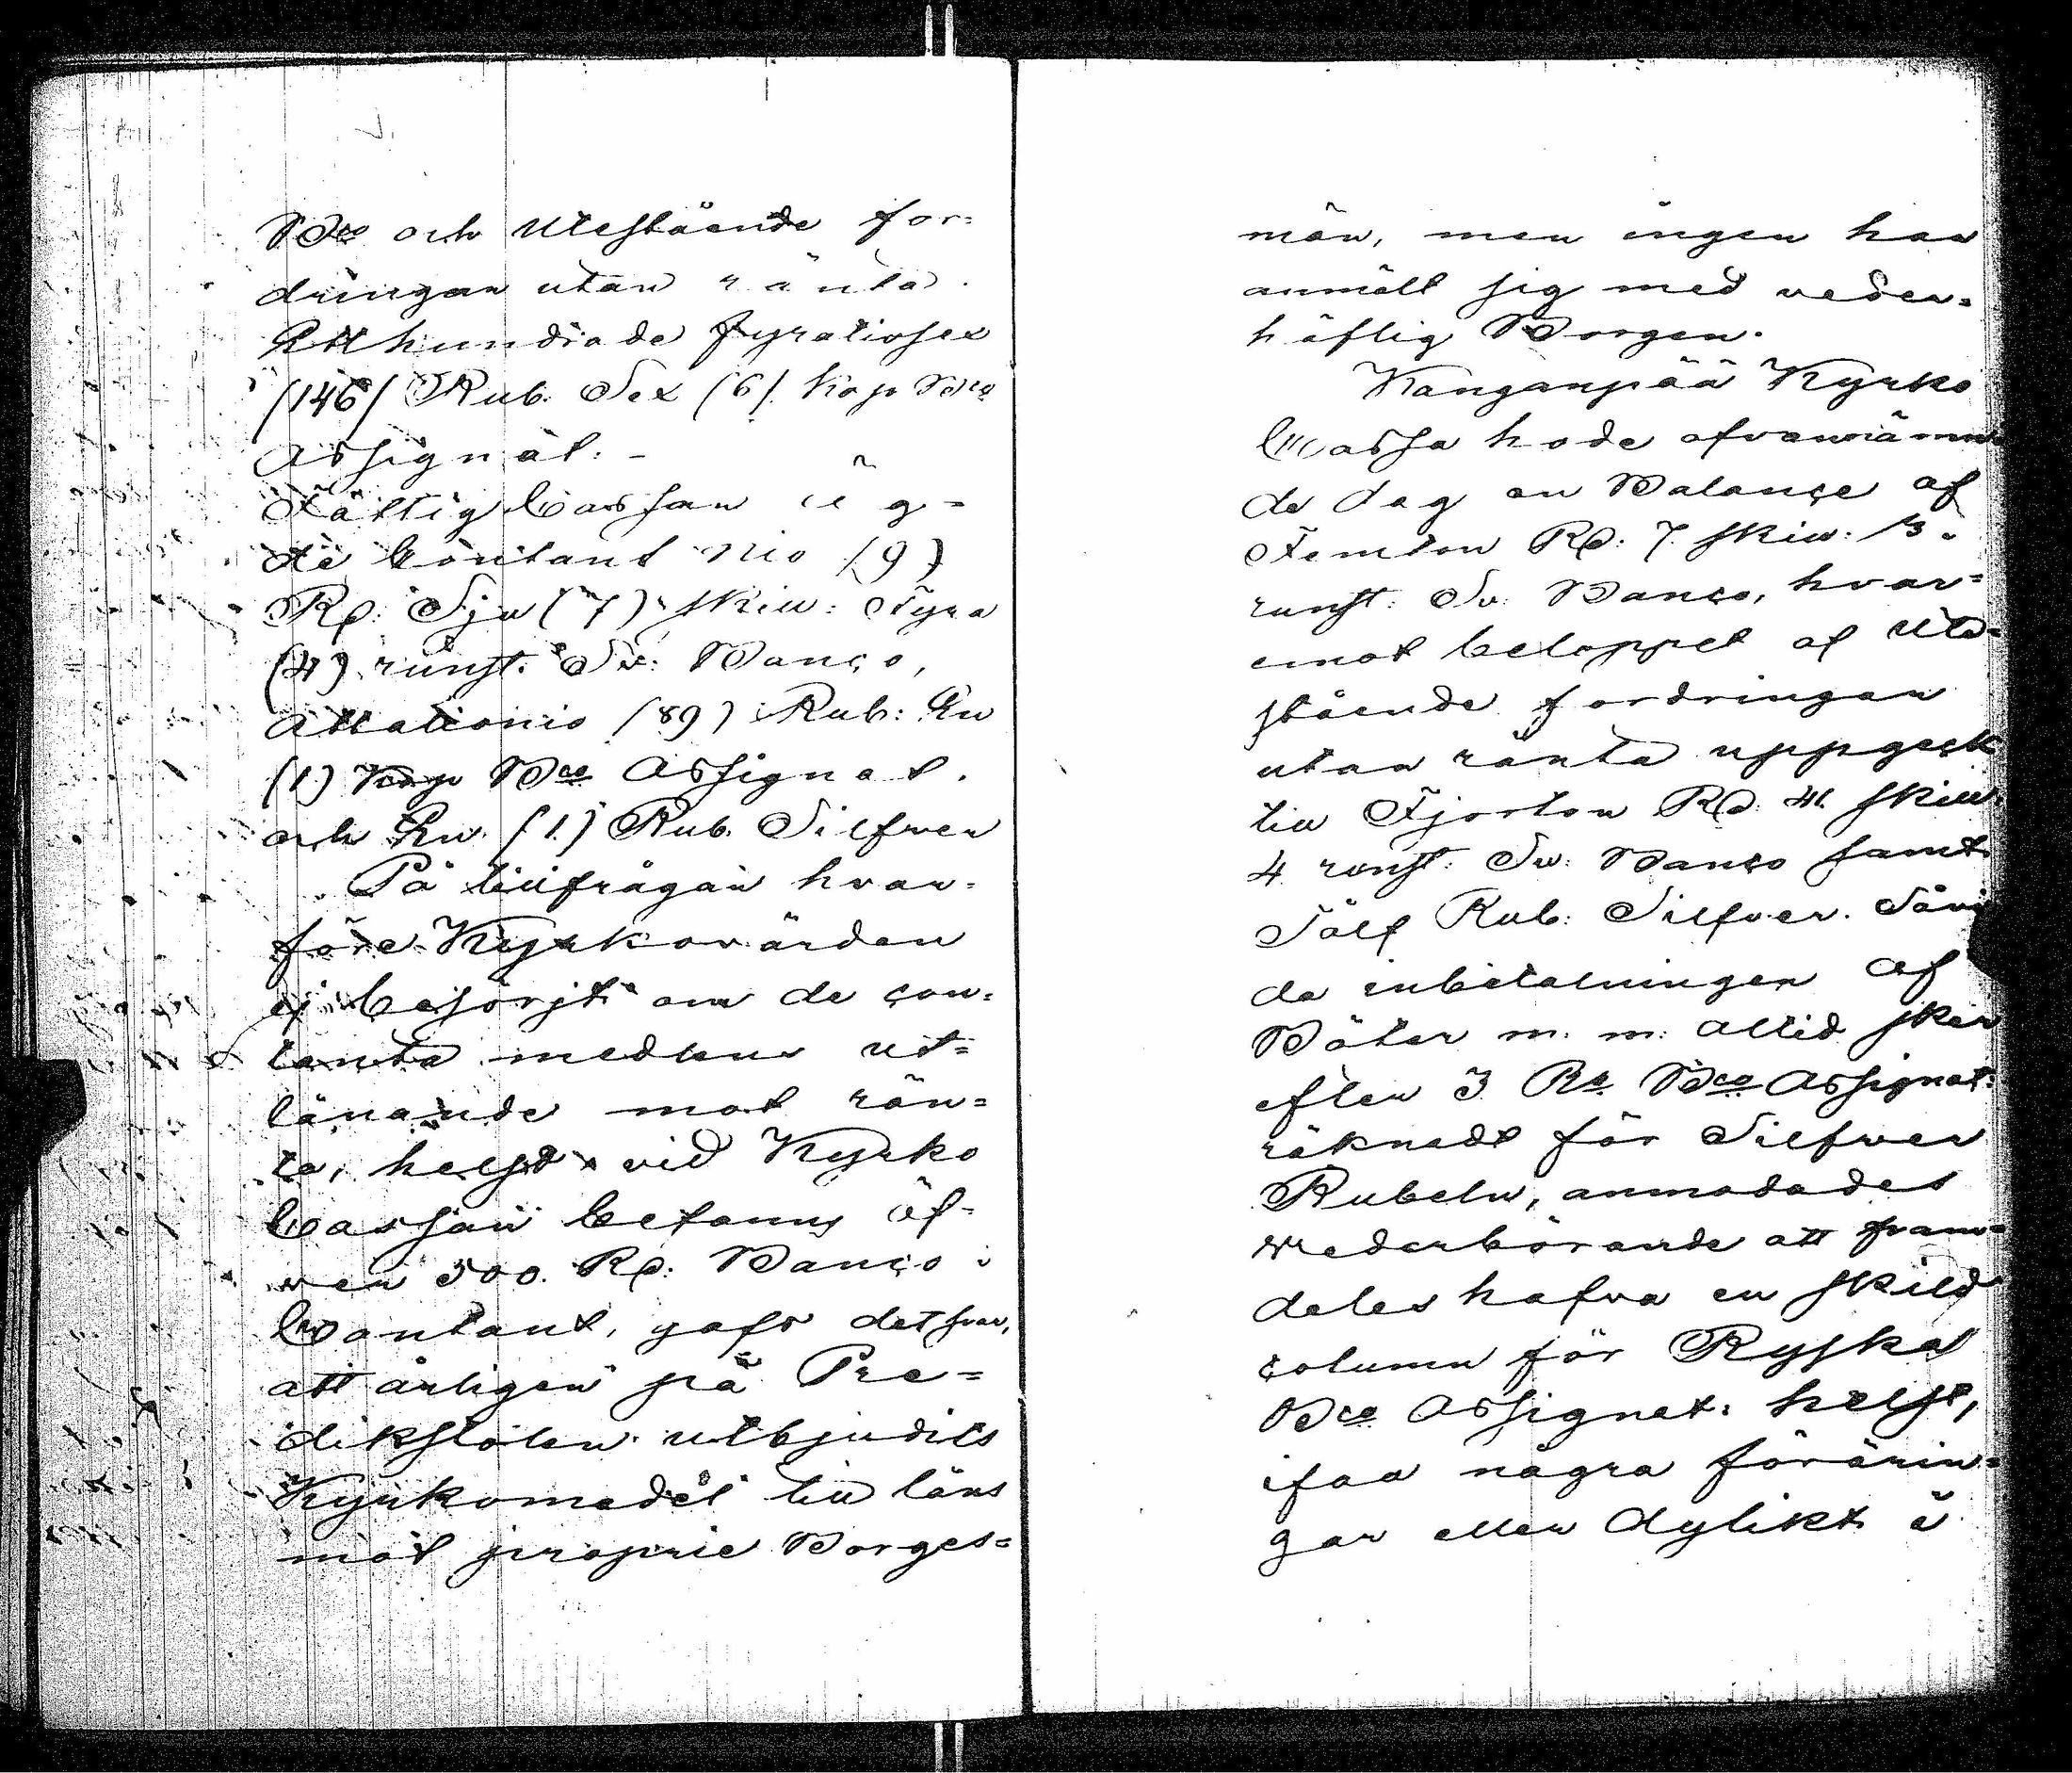 Bco och Utestående for-
dringar utan ränta.
Ett hundrade fyratiosex
(146) Rub. Sex (6). Kop Bco
Assignat. -
Fattig Cassan äg-
de Contant Nio (9)
Rd: Sju (7) skill: Fyra
(4) runst. Sv: Banco,
Attationio (89) Rub: En
(1) Kop Bco Assignat.
och En (1.) Rub. Silfver
På tillfrågan hvar-
före Kyrkovärden
ej besörjt om de con-
tanta medlens ut-
lånande mot rän-
ta, helst vid Kyrko
Cassan befanns äf-
ven 500. Rd: Banco i
Contant, gafs det svar,
att årligen på Pre-
dikstolen utbjudits
Kyrkomedel till låns
mot proprie Borges-
män, men ingen har
anmält sig med veder-
häftig Borgen.
Kanganpää Kyrko
Cassa hade ofvannämn-
de dag en Balance af
Femton Rd: 7. skill: 3.
runst: Sv: Banco, hvar-
emot beloppet af Ute-
stående fordringar
utan ränta uppgeck
till Fjorton Rd: 41. skill.
4 runst: Sv: Banco samt
Tolf Rub: Silfver. Såvi
da inbetalningen af
Böter m. m. alltid sker
efter 3 Rr Bco Assignat:
räknadt för Silfver
Rubeln, anmodades
Vederbörande att fram-
deles hafva en skild
column för Ryska
Bco Assignat: helst,
ifall några förärin-
gar eller dylikt i